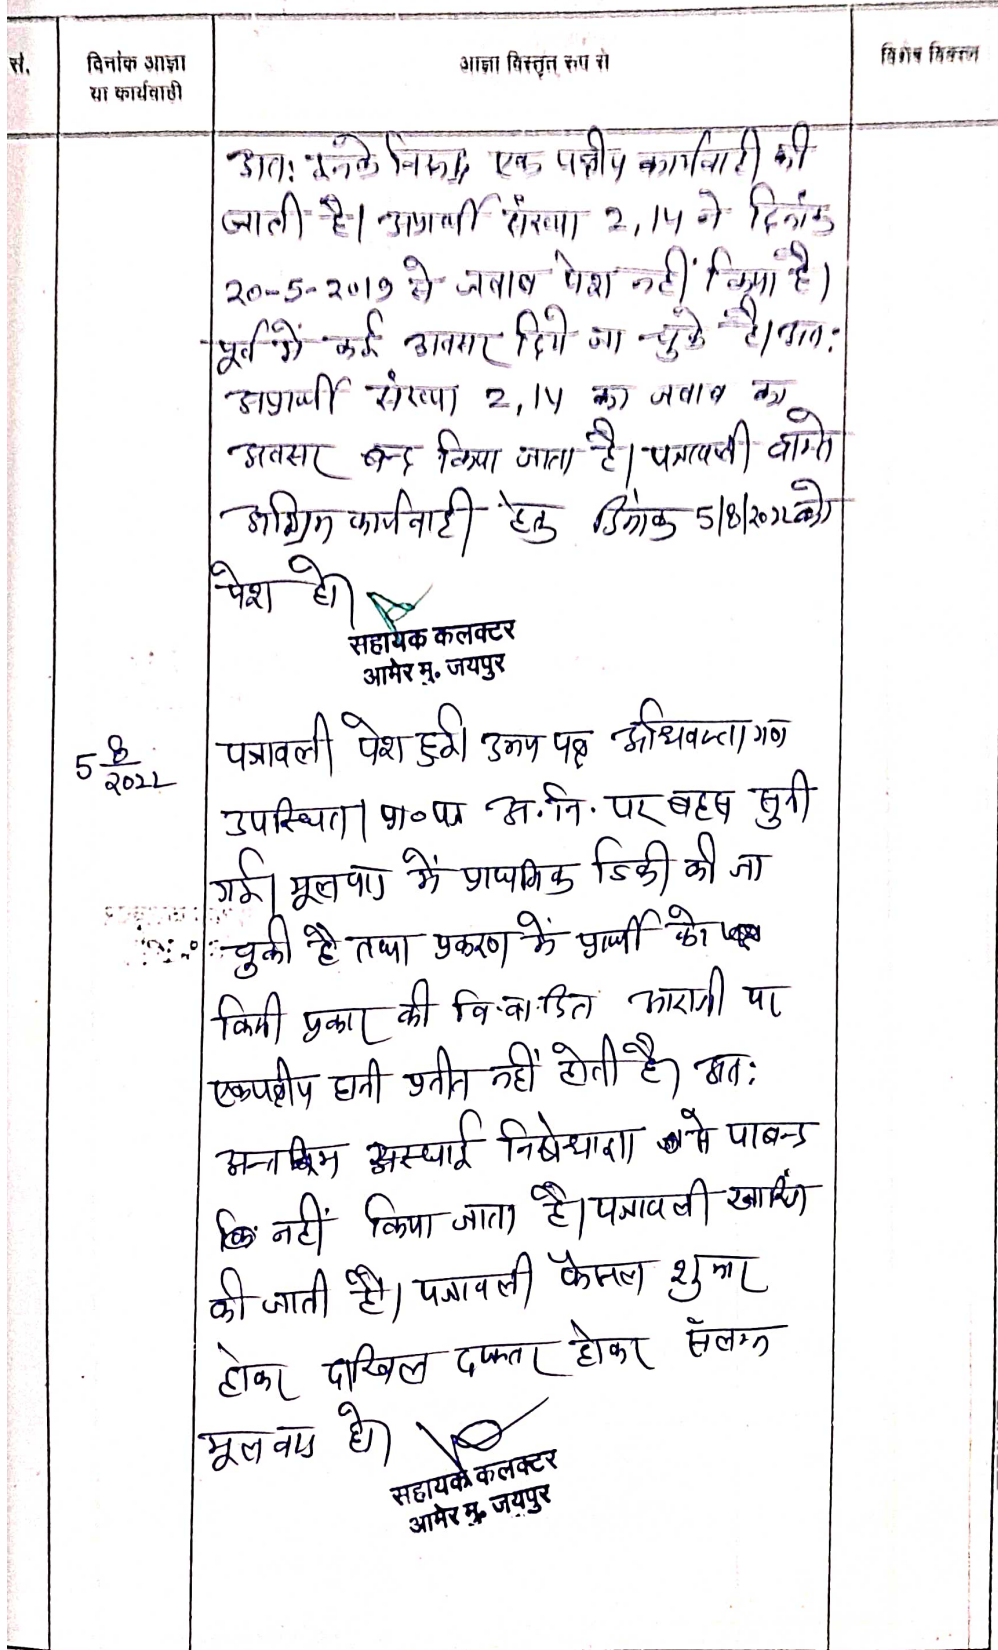 सं.
दिनांक आज्ञा
या कार्यवाही
आज्ञा विस्तृत रुप से
विशेष विवरण
अतः इनके विरूद्ध एक पक्षीय कार्यवाही की
जाती है। अप्रार्थी संख्या 2,14 ने दिनांक
20-5-2019 से जवाब पेश नहीं किया है।
पूर्व में कई अवसर दिये जा चुके है। अतः
अप्रार्थी संख्या 2,14 का जवाब का
अवसर बन्द किया जाता है। पत्रावली वास्ते
अग्रिम कार्यवाही हेतु दिनांक 5/8/2022 को
पेश हो।
सहायक कलक्टर
आमेर मु. जयपुर
5 8/2022
पत्रावली पेश हुई। उभय पक्ष अधिवक्ता गण
उपस्थित। प्रा०पत्र अ.नि. पर बहस सुनी
गई। मूल वाद में प्राथमिक डिक्री की जा
चुकी है तथा प्रकरण में प्रार्थी को
किसी प्रकार की विवादित आराजी पर
एकपक्षीय हानी प्रतीत नहीं होती है। अतः
अन्तरिम अस्थाई निषेधाज्ञा से पाबन्द
नहीं किया जाता है। पत्रावली खारिज
की जाती है। पत्रावली फैसल शुमार
होकर दाखिल दफ्तर होकर संलग्न
मूल वाद हो।
सहायक कलक्टर
आमेर मु. जयपुर